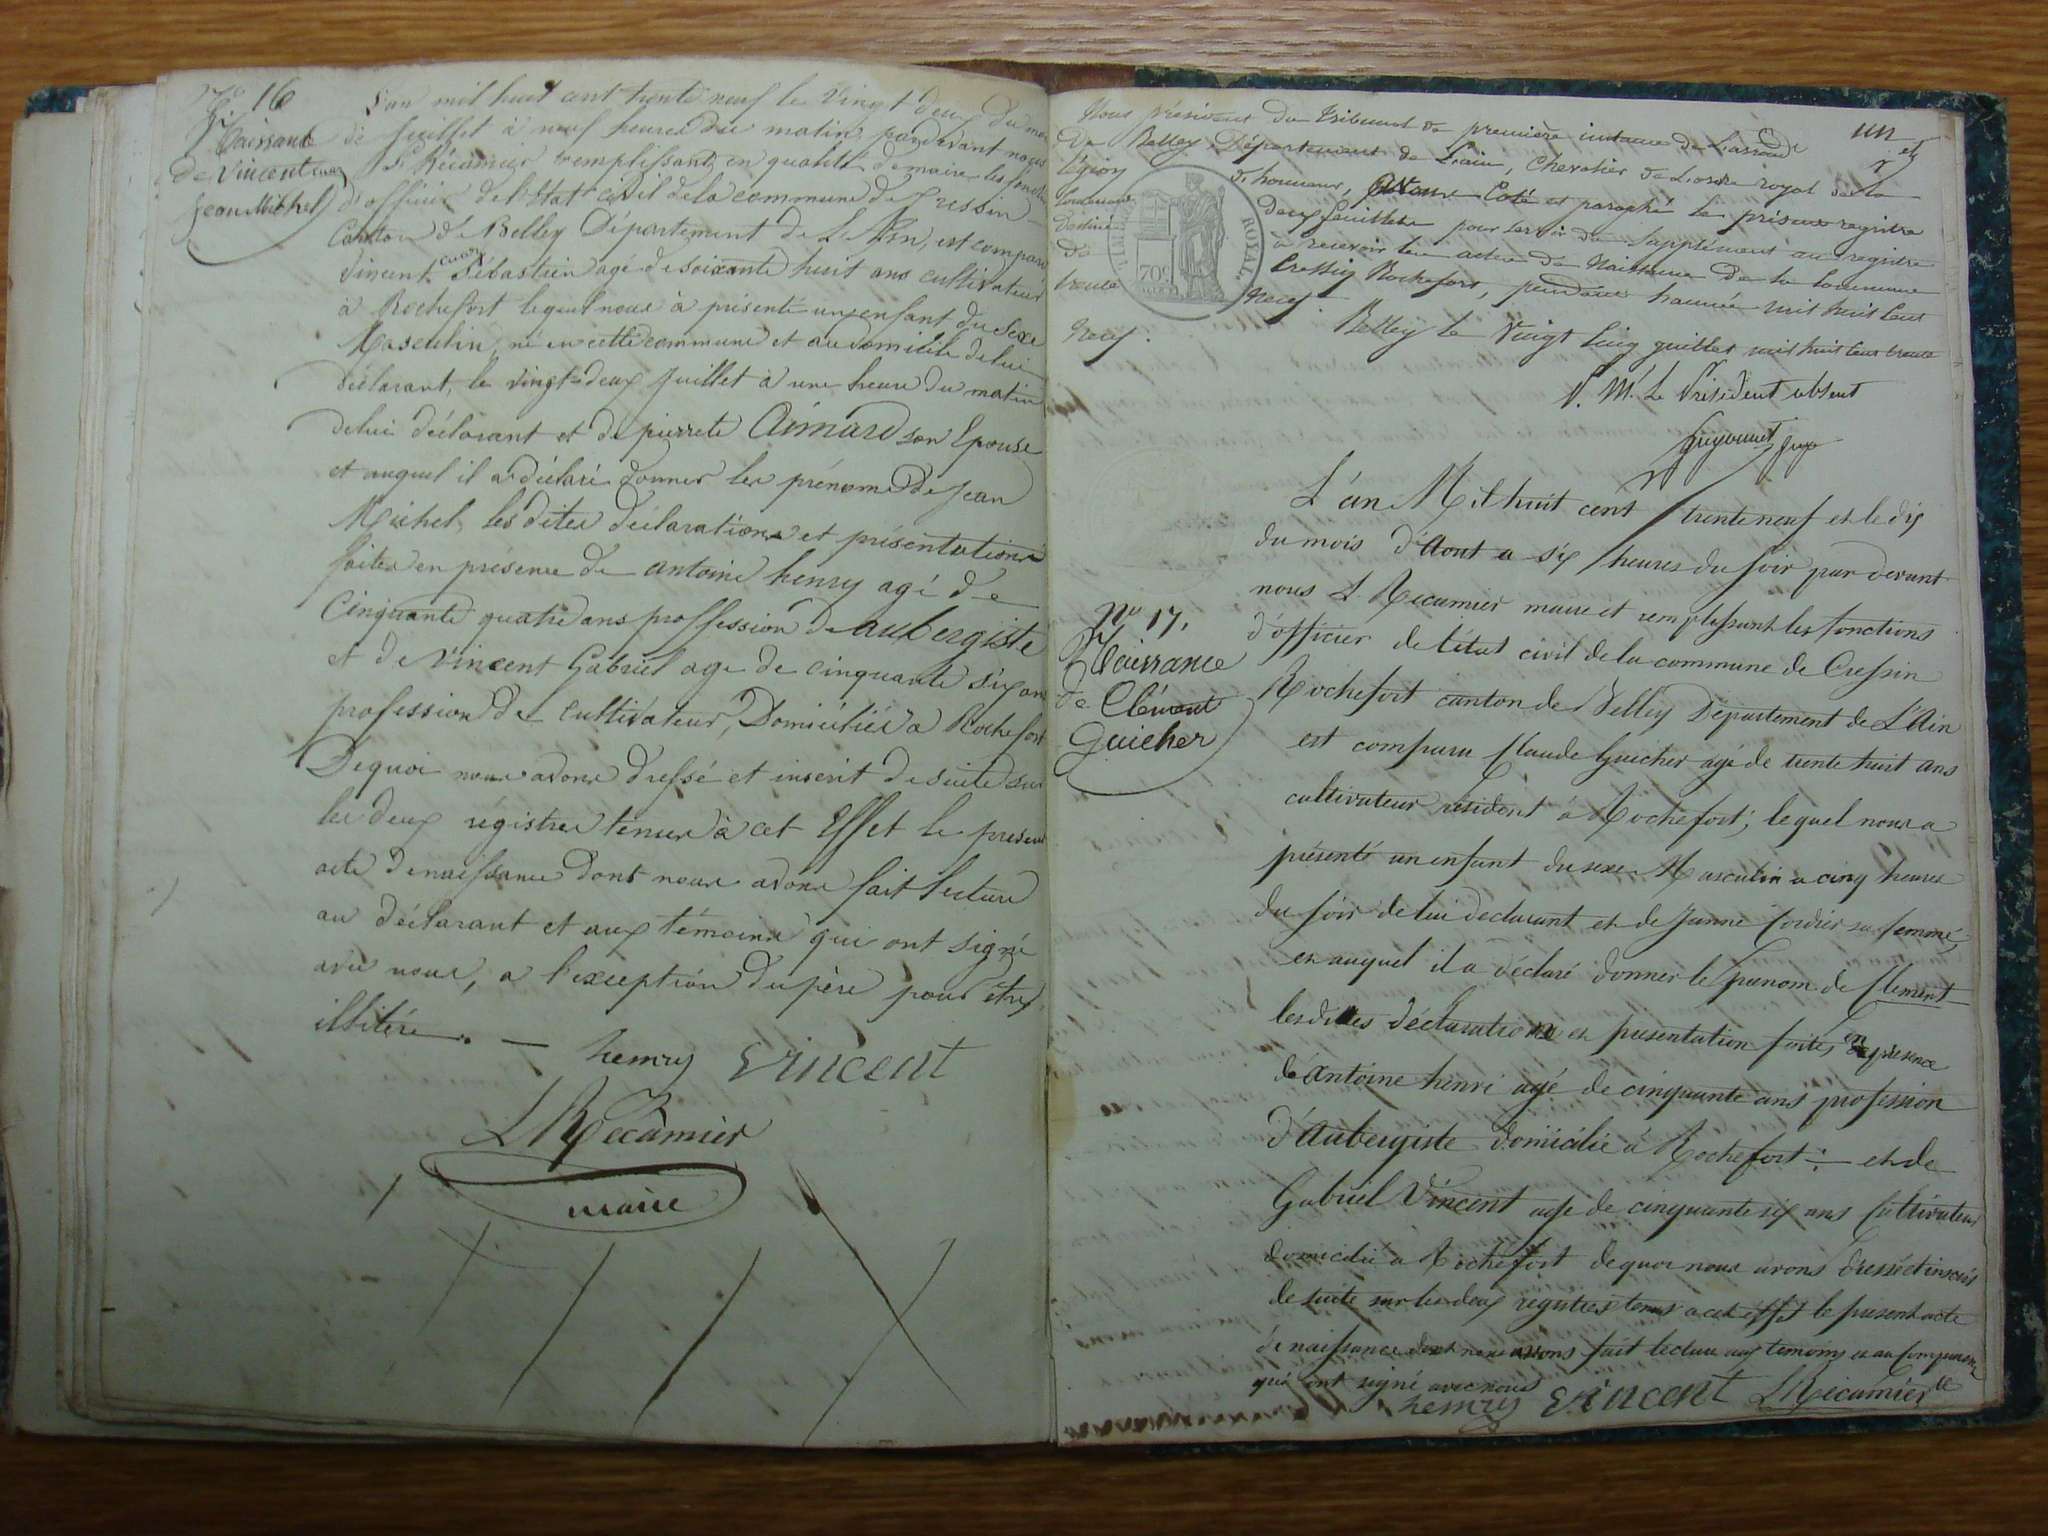 N° 16
Naissance
de Vincent
Jean Michel
L'an mil huit cent trente neuf le vingt deux du mois
de Juillet à neuf heures du matin pardevant nous
Récamier remplissant en qualité de maire les fonctions
d'officier de l'Etat civil de la commune de Cressin
Canton de Belley Département de L'Ain, est comparu
Vincent Sébastien agé de soixante huit ans cultivateur
à Rochefort lequel nous à présenté un enfant du sexe
Masculin, né en cette commune et au domicile de lui
déclarant, le vingt-deux Juillet à une heure du matin
de lui déclarant et de pierrete Aimard son Epouse
et auquel il a déclaré donner les prénoms de Jean
Michel, les dites déclarations et présentations
faites en présence de antoine henry agé de
Cinquante quatre ans proffession de aubergiste
et de Vincent Gabriel age de cinquante six ans
profession de cultivateur, Domiciliés a Rochefort
Dequoi nous avons dressé et inscrit de suite sur
les deux régistres tenus à cet Effet le présent
acte de naissance dont nous avons fait lecture
au déclarant et aux témoins qui ont signé
avec nous, a l'exception du père pour être
illitéré. — henry Vincent
LRécamier
maire
Nous président du Tribunal de première instance de L'arrond
de Belley, Département de L'ain, Chevalier de L'ordre royal de la
légion d'honneur, Coté et paraphé le présent registre
deux feuillets pour servir de Supplément au registre
destiné à recevoir les actes de Naissance de la Commune
de Cressin Rochefort, pendant l'année mil huit cent
trente neuf.
Belley le vingt cinq juillet mil huit cent trente
neuf.
P. M. Le Président absent
juge
ROYAL
70c
N° 17.
Naissance
de Clément
Guicher
L'an Mil huit cent trente neuf et le dix
du mois d'Aout a six heures du soir par devant
nous L Recamier maire et remplissant les fonctions
d'officier de l'état civil de la commune de Cressin
Rochefort canton de Belley Département de L'Ain
est comparu Claude Guicher agé de trente huit ans
cultivateur résident à Rochefort; lequel nous a
présenté un enfant du sexe Masculin a cinq heures
du soir de lui declarant et de Janne Cordier sa femme
et auquel il a déclaré donner le prenom de Clement
lesdites déclarations et presentation faites en présence
de antoine henri agé de cinquante ans profession
d'Aubergiste domicilié à Rochefort; et de
Gabriel Vincent age de cinquante six ans Cultivateur
domicilié a Rochefort dequoi nous avons dressé et inscrit
de suite sur les deux registres tenus a cet effet le present acte
de naissance dont nous avons fait lecture aux temoins et au Comparant
qui ont signé avec nous
henry Vincent LRecamier